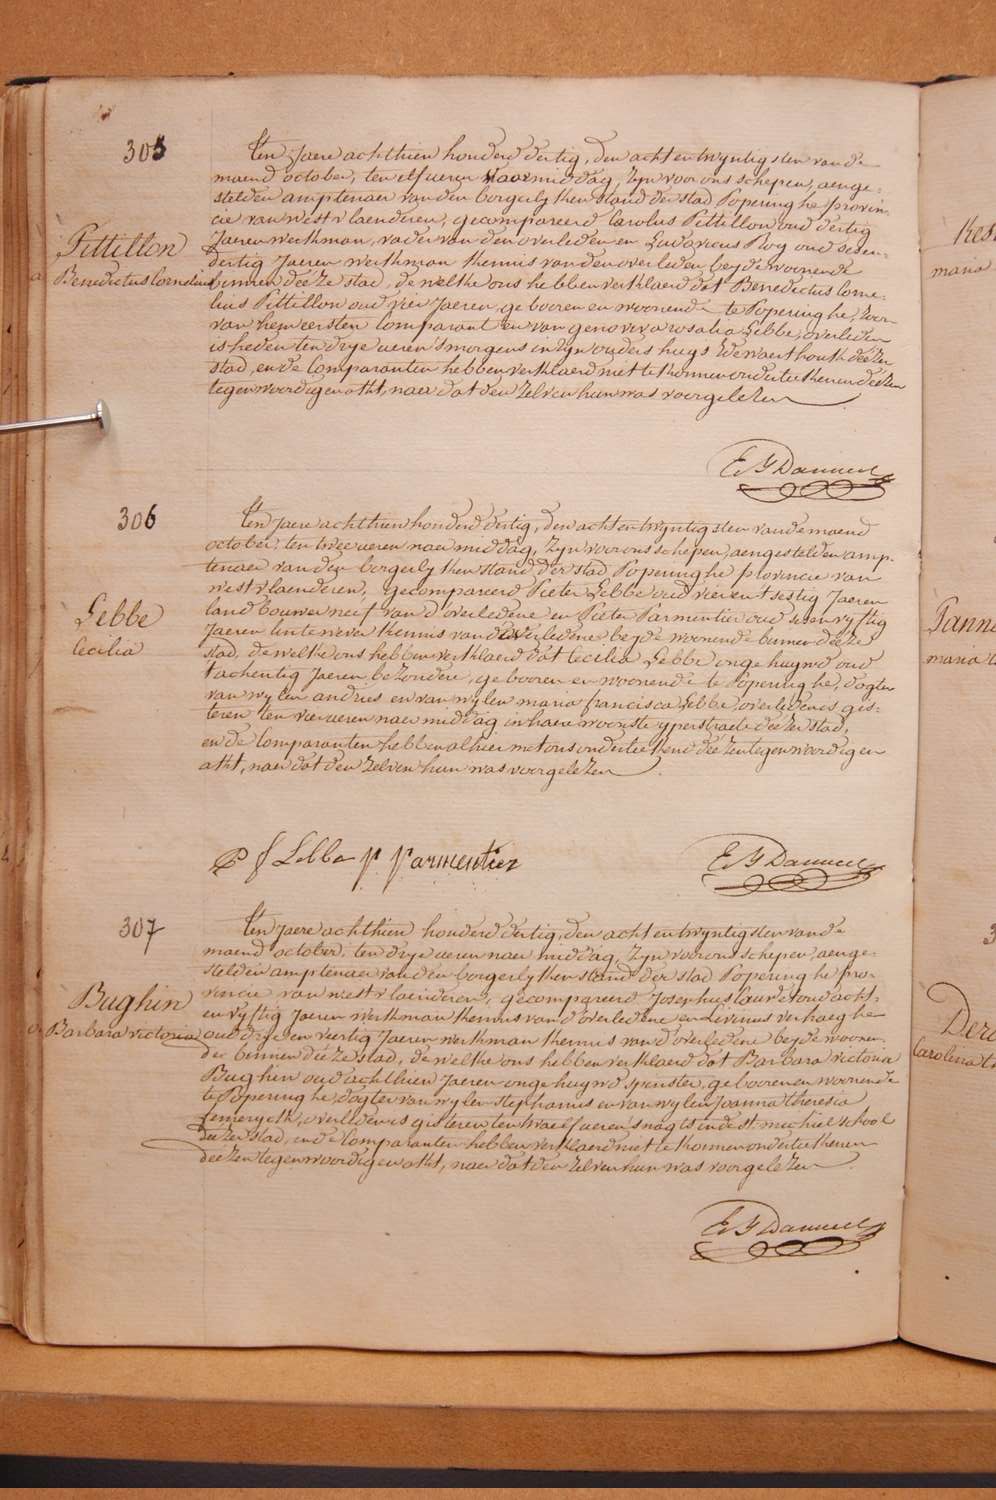 305
Ten Jaere achthien honderd dertig, den acht en twyntigsten van de
maend october, ten elf ueren voormiddag, zyn voor ons schepen, aenge=
stelden amptenaer van den borgerlyken stand der stad Poperinghe provin-
cie van westvlaenderen, gecompareerd Carolus Pittillon oud dertig
Jaeren werkman, vader van den overleden en Ludovicus Ploy oud seven-
dertig Jaeren werkman kennis van den overleden beyde woonende
binnen deéze stad, de welke ons hebben verklaerd dat Benedictus Corne-
lius Pittillon oud vier Jaeren, gebooren en woonende te Poperinghe, zoon
van hem eersten Comparant en van genoveva rosalia Lebbe, overleden
is heden ten drye ueren 's morgens in zyn ouders huys deezer
stad, en de Comparanten hebben verklaerd niet te konnen onderteekenen deezen
tegenwoordigen akt, naer dat den zelven hun was voorgelezen
Pittillon
Benedictus Cornelius
E Y Danneel
306
Ten Jaere achthien honderd dertig, den acht en twyntigsten van de maend
october, ten twee ueren naer middag, zyn voor ons schepen, aengestelden amp-
tenaer van den borgerlyken stand der stad Poperinghe provincie van
westvlaenderen, gecompareerd Pieter Lebbe oud vier en t sestig Jaeren
landbouwer neef van d'overledene en Pieter Parmentier oud seven vyftig
Jaeren lintewever kennis van de overledene beyde woonende binnen deeze
stad, de welke ons hebben verklaerd dat Cecilia Lebbe ongehuywd oud
tachentig Jaeren bezondere, gebooren en woonende te Poperinghe, dogter
van wylen andries en van wylen maria francisca Lebbe, overleden is gis=
teren ten vier ueren naer middag in haere woonste yperstraete deezer stad,
en de Comparanten hebben alhier met ons onderteekend deezen tegenwoordigen
akt, naer dat den zelven hun was voorgelezen
Lebbe
Cecilia
P f Lebbe p parmentier
E Y Danneel
307
Ten Jaere achthien honderd dertig, den acht en twyntigsten van de
maend october, ten drye ueren naer middag, zyn voor ons schepen, aenge-
stelden amptenaer van den borgerlyken stand der stad Poperinghe pro-
vincie van westvlaenderen, gecompareerd Josephus Cauvet oud acht-
en vyftig Jaeren werkman kennis van d'overledene en Livinus verhaeghe
oud dry en veertig Jaeren werkman kennis van d'overledene beyde woonen-
de binnen deéze stad, de welke ons hebben verklaerd dat Barbara victoria
Bughin oud achthien Jaeren ongehuywd spinster, gebooren en woonende
te Poperinghe, dogter van wylen Stephanus en van wylen Joanna theresia
overleden is gisteren ten twaelf ueren 's nagts in de st. michiel school
deezer stad, en de Comparanten hebben verklaerd niet te konnen onderteekenen
deezen tegenwoordigen akt, naer dat den zelven hun was voorgelezen
Bughin
Barbara victoria
E Y Danneel
maria
maria
Carolina